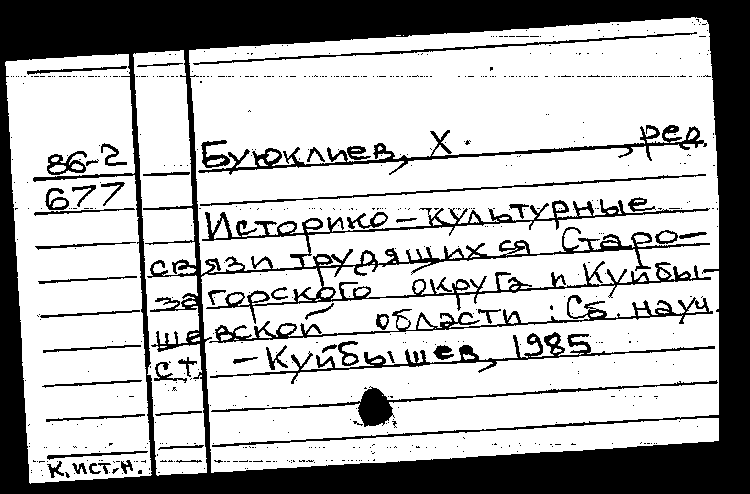 86-2 Буюклиев, Х. , ред.
677
Историко-культурные
связи трудящихся Старо-
загорского округа и Куйбы-
шевской области : Сб. науч.
ст. - Куйбышев, 1985
к.ист.н.